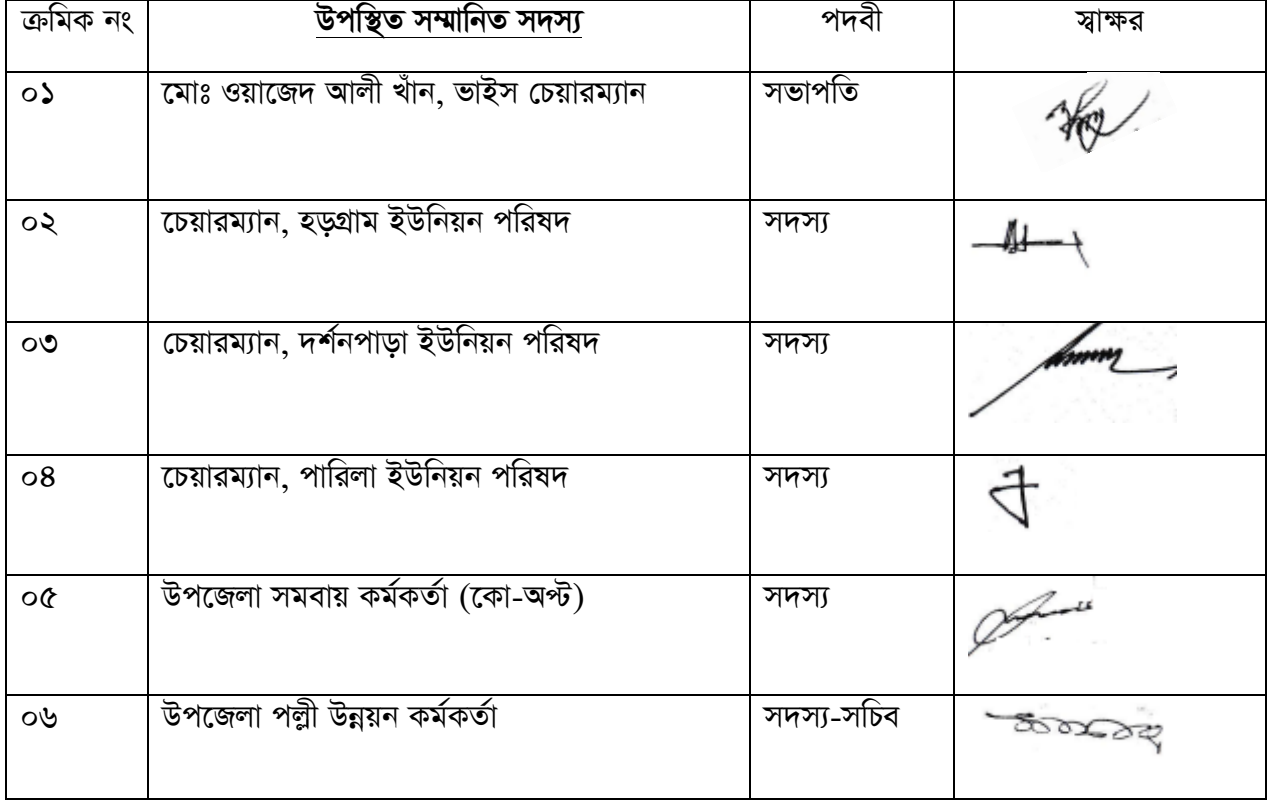 ক্রমিক নং উপস্থিত সম্মানিত সদস্য পদবী স্বাক্ষর
০১ মোঃ ওয়াজেদ আলী খাঁন, ভাইস চেয়ারম্যান সভাপতি
০২ চেয়ারম্যান, হড়গ্রাম ইউনিয়ন পরিষদ সদস্য
০৩ চেয়ারম্যান, দর্শনপাড়া ইউনিয়ন পরিষদ সদস্য
০৪ চেয়ারম্যান, পারিলা ইউনিয়ন পরিষদ সদস্য
০৫ উপজেলা সমবায় কর্মকর্তা (কো-অপ্ট) সদস্য
০৬ উপজেলা পল্লী উন্নয়ন কর্মকর্তা সদস্য-সচিব